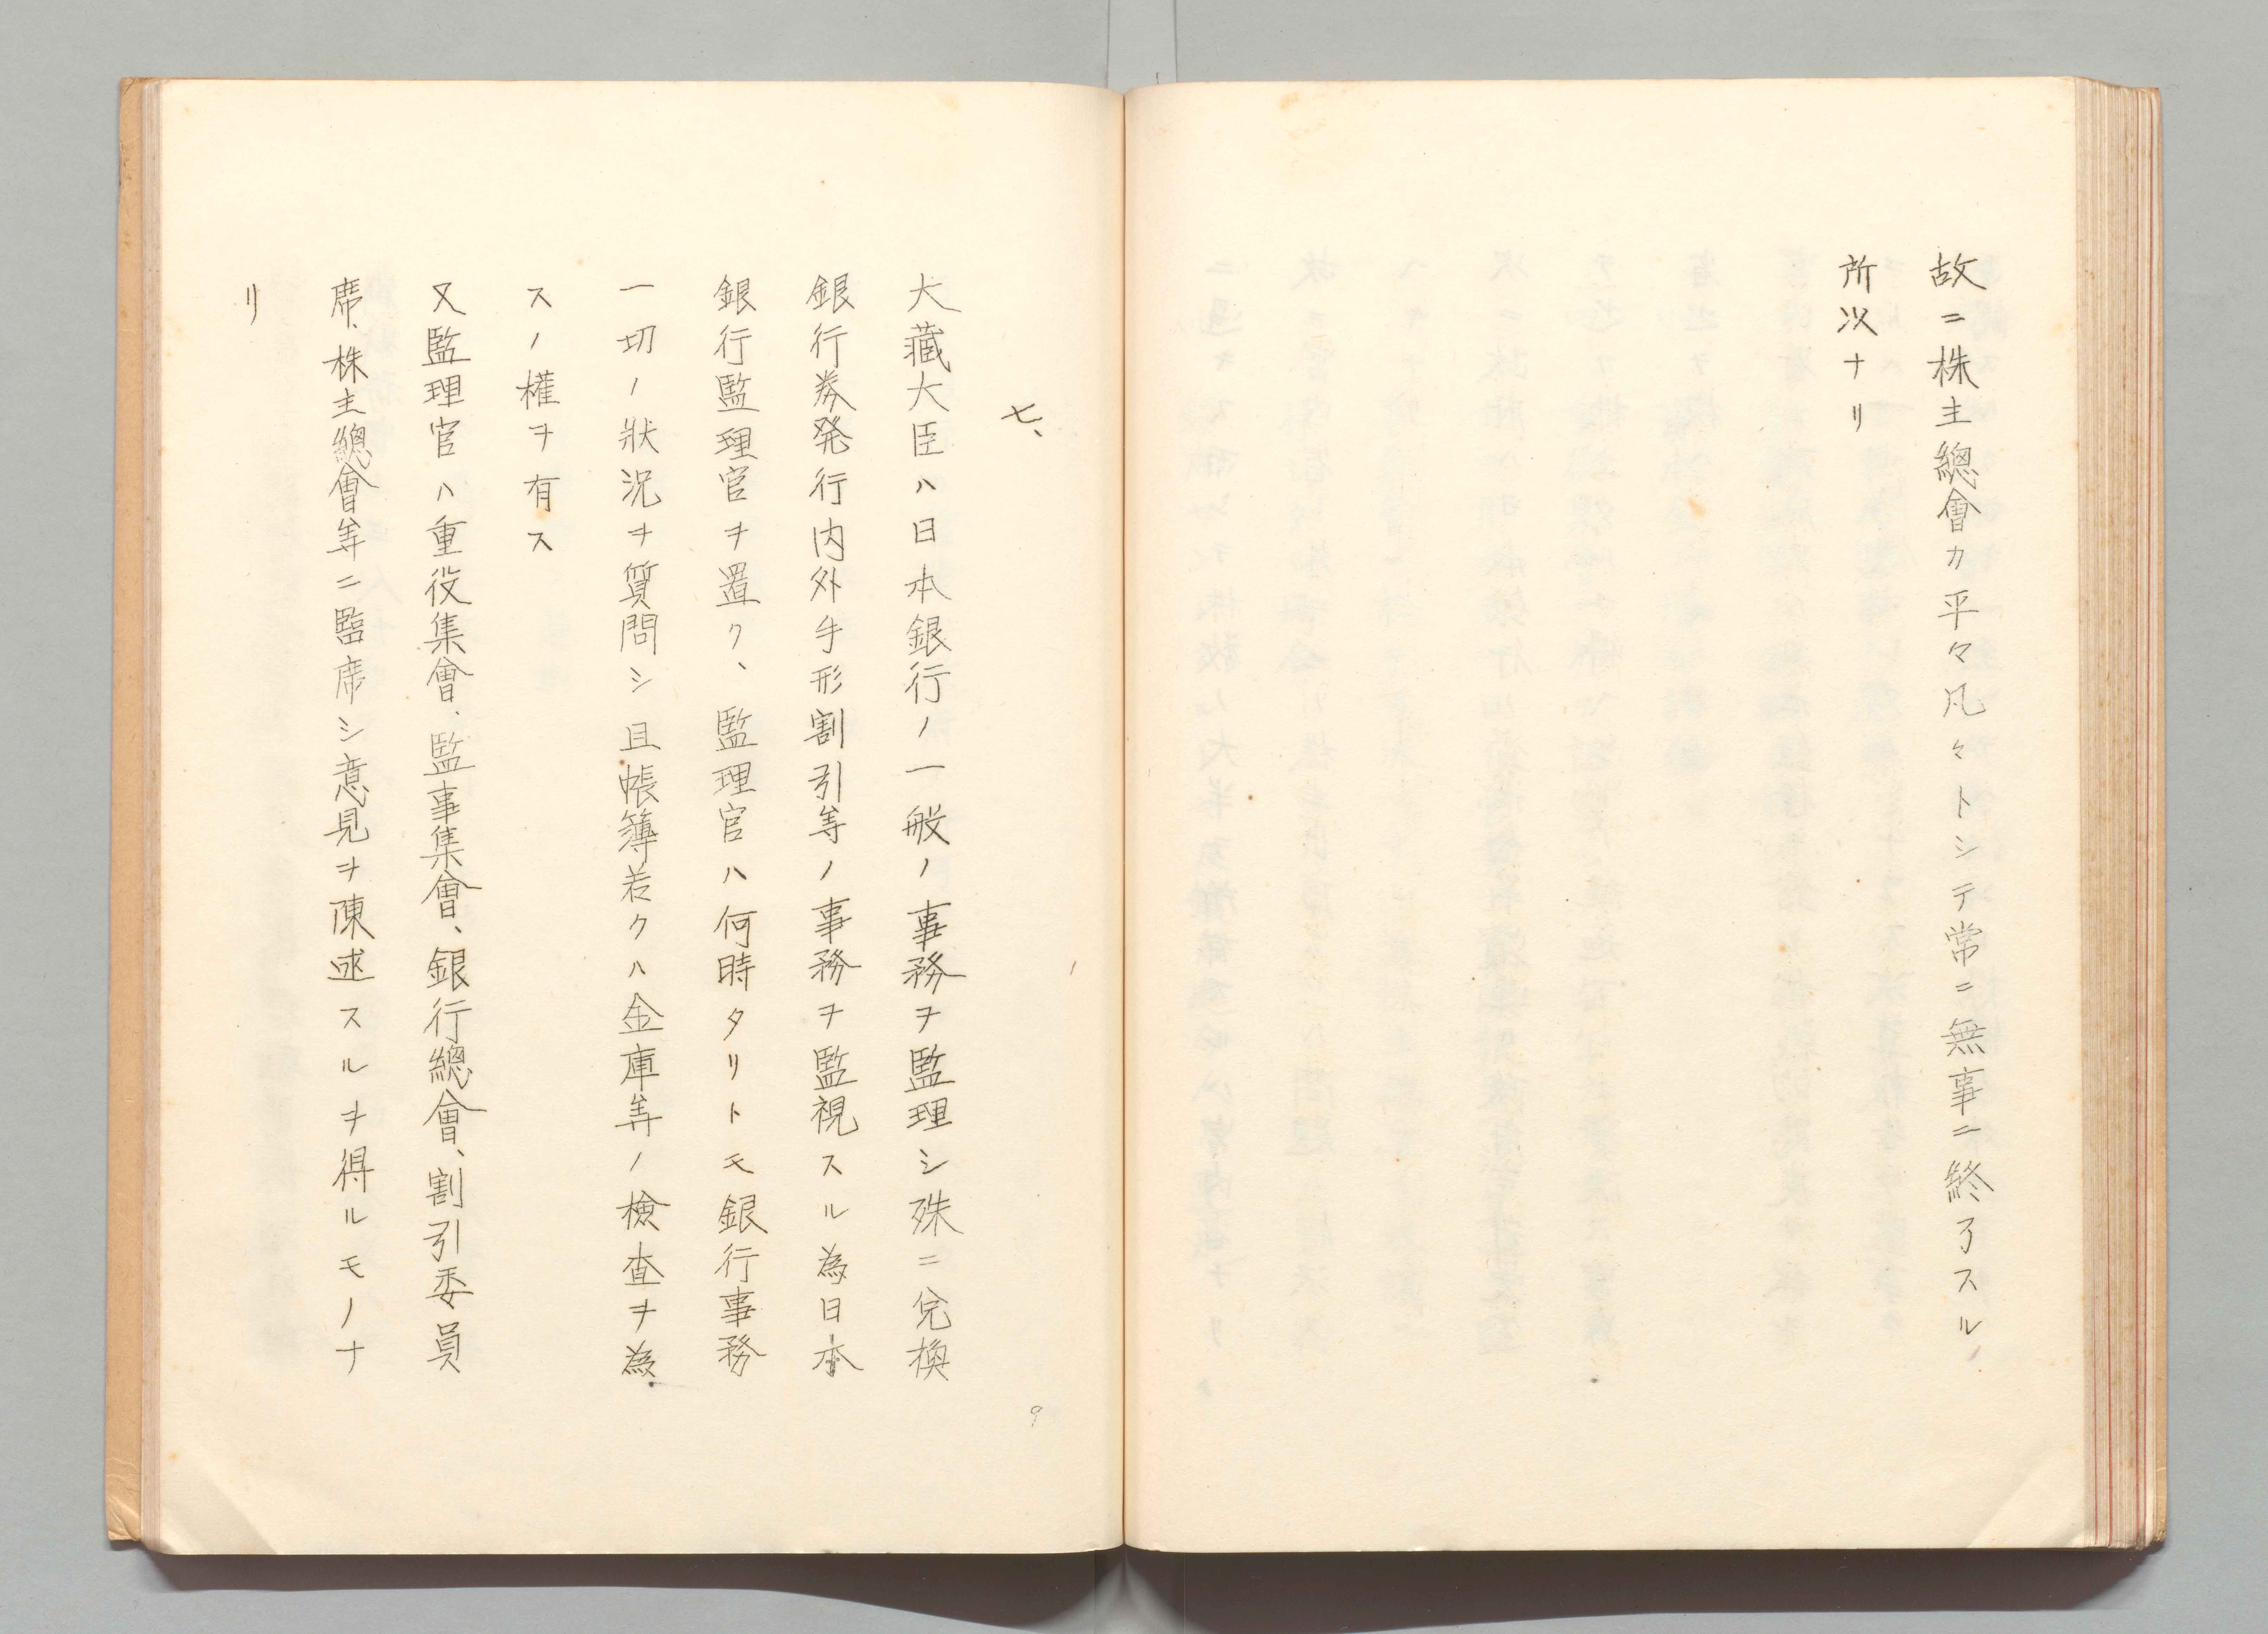 故ニ株主總會カ平々凡々トシテ常ニ無事ニ終了スルノ
所以ナリ
七、
大藏大臣ハ日本銀行ノ一般ノ事務ヲ監理シ殊ニ兌換
銀行券発行内外手形割引等ノ事務ヲ監視スル為日本
銀行監理官ヲ置ク、監理官ハ何時タリトモ銀行事務
一切ノ狀況ヲ質問シ且帳簿若クハ金庫等ノ検査ヲ為
スノ權ヲ有ス
又監理官ハ重役集會、監事集會、銀行總會、割引委員
席、株主總會等ニ臨席シ意見ヲ陳述スルヲ得ルモノナ
リ
9